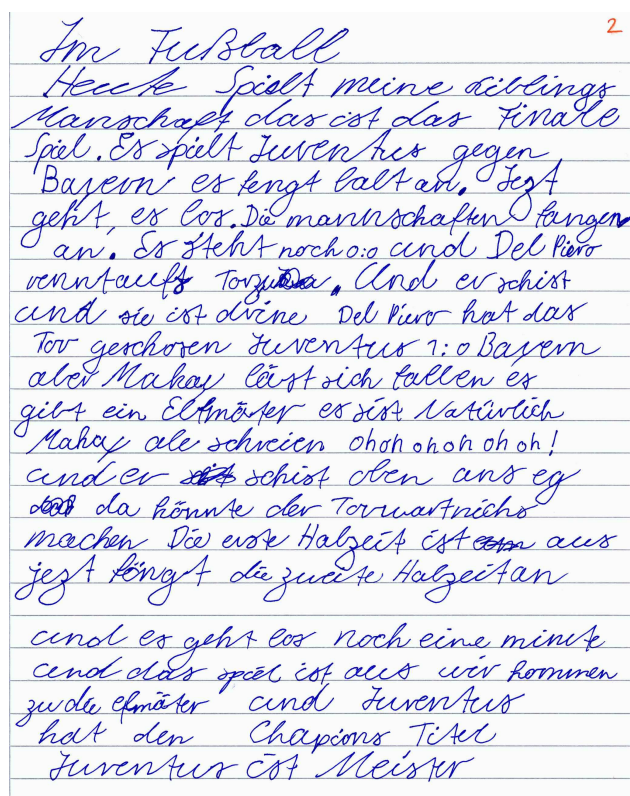 2
Im Fußball
Heute Spielt meine Liblings
Manschaft das ist das Finale
Spiel. Es spielt Juventus gegen
Bayern es fengt balt an. Jezt
geht es los. Die mannschaften fangen
an. Es steht noch 0:0 und Del Piero
renntaufs Torzu. Und er schist
und sie ist drine Del Piero hat das
Tor geschosen Juventus 1:0 Bayern
aber Makay läst sich fallen es
gibt ein Elfmäter es sist Natürlich
Makay ale schreien ohoh ohoh oh oh!
und er schist oben ans eg
da könnte der Torwartnichs
machen Die erste Halzeit ist aus
jezt fängt die zweite Halzeitan
und es geht los noch eine minute
und das spiel ist aus wir kommen
zu die elfmäter und Juventus
hat den Chapions Titel
Juventus ist Meister